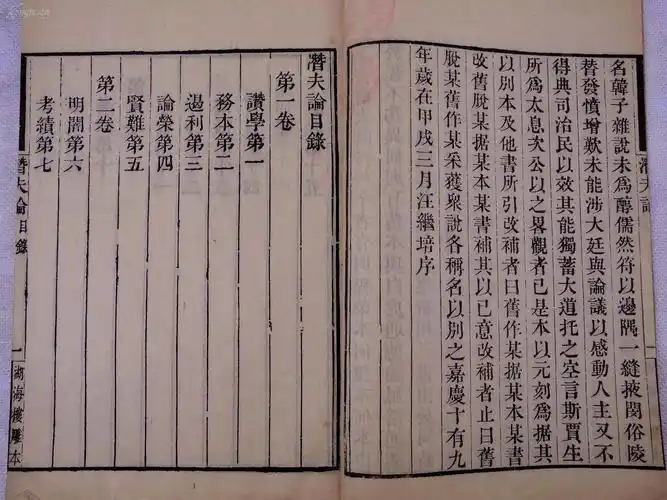 名韓子雜說未為醇儒然符以邊隅一縫掖閔俗陵
替發憤增歎未能涉大廷與論議以感動人主又不
得典司治民以效其能獨蓄大道托之空言斯賈生
所為太息次公以之畧觀者已是本以元刻為據其
以別本及他書所引改補者曰舊作某據某本某書
改舊脫某据某本某書補其以已意改補者止曰舊
脫某舊作某采獲眾說各稱名以別之嘉慶十有九
年歲在甲戌三月汪繼培序
潛夫論
潛夫論目錄
第一卷
讚學第一
務本第二
遏利第三
論榮第四
賢難第五
第二卷
明闇第六
考績第七
潛夫論目錄
一
湖海樓雕本